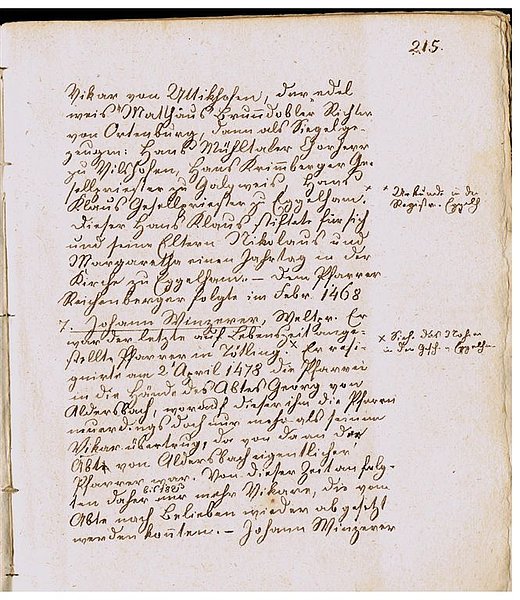 215.
Vikar von Uttikhofen, der edel
weis Matthäus Grundobler Richter
von Ortenburg, dann als Siegelge-
zeugen: Hans Mühltaler Chorherr
zu Vilshofen, Hans Krimberger Ge-
sellpriester zu Galgweis. Hans
Klaus Gesellpriester zu Eggelham. ×
Dieser Hans Klaus stiftete für sich
und seine Eltern Nikolaus und
Margaretha einen Jahrtag in der
Kirche zu Eggelham. – Dem Pfarrer
Reichenberger folgte im Febr. 1468
7. Johann Winzerer, Welter. Er
war der letzte auf Lebenszeit ange-
stellte Pfarrer in Nötling. × Er resi-
gnirte am 2 April 1478 die Pfarrei
in die Hände des Abtes Georg von
Aldersbach, worauf dieser ihm die Pfarrei
neuerdings doch nur mehr als seinem
Vikar übertrug, da von da an der
Abt von Aldersbach eigentlicher
Pfarrer war. Von dieser Zeit an folg-
ten daher bis 1803 nur mehr Vikare, die vom
Abte nach Belieben wieder abgesetzt
werden konten. – Johann Winzerer
× Urkunde in der
Registr. Eggelh
× Sieh. das Nähere
in der Gesch. v. Eggelham